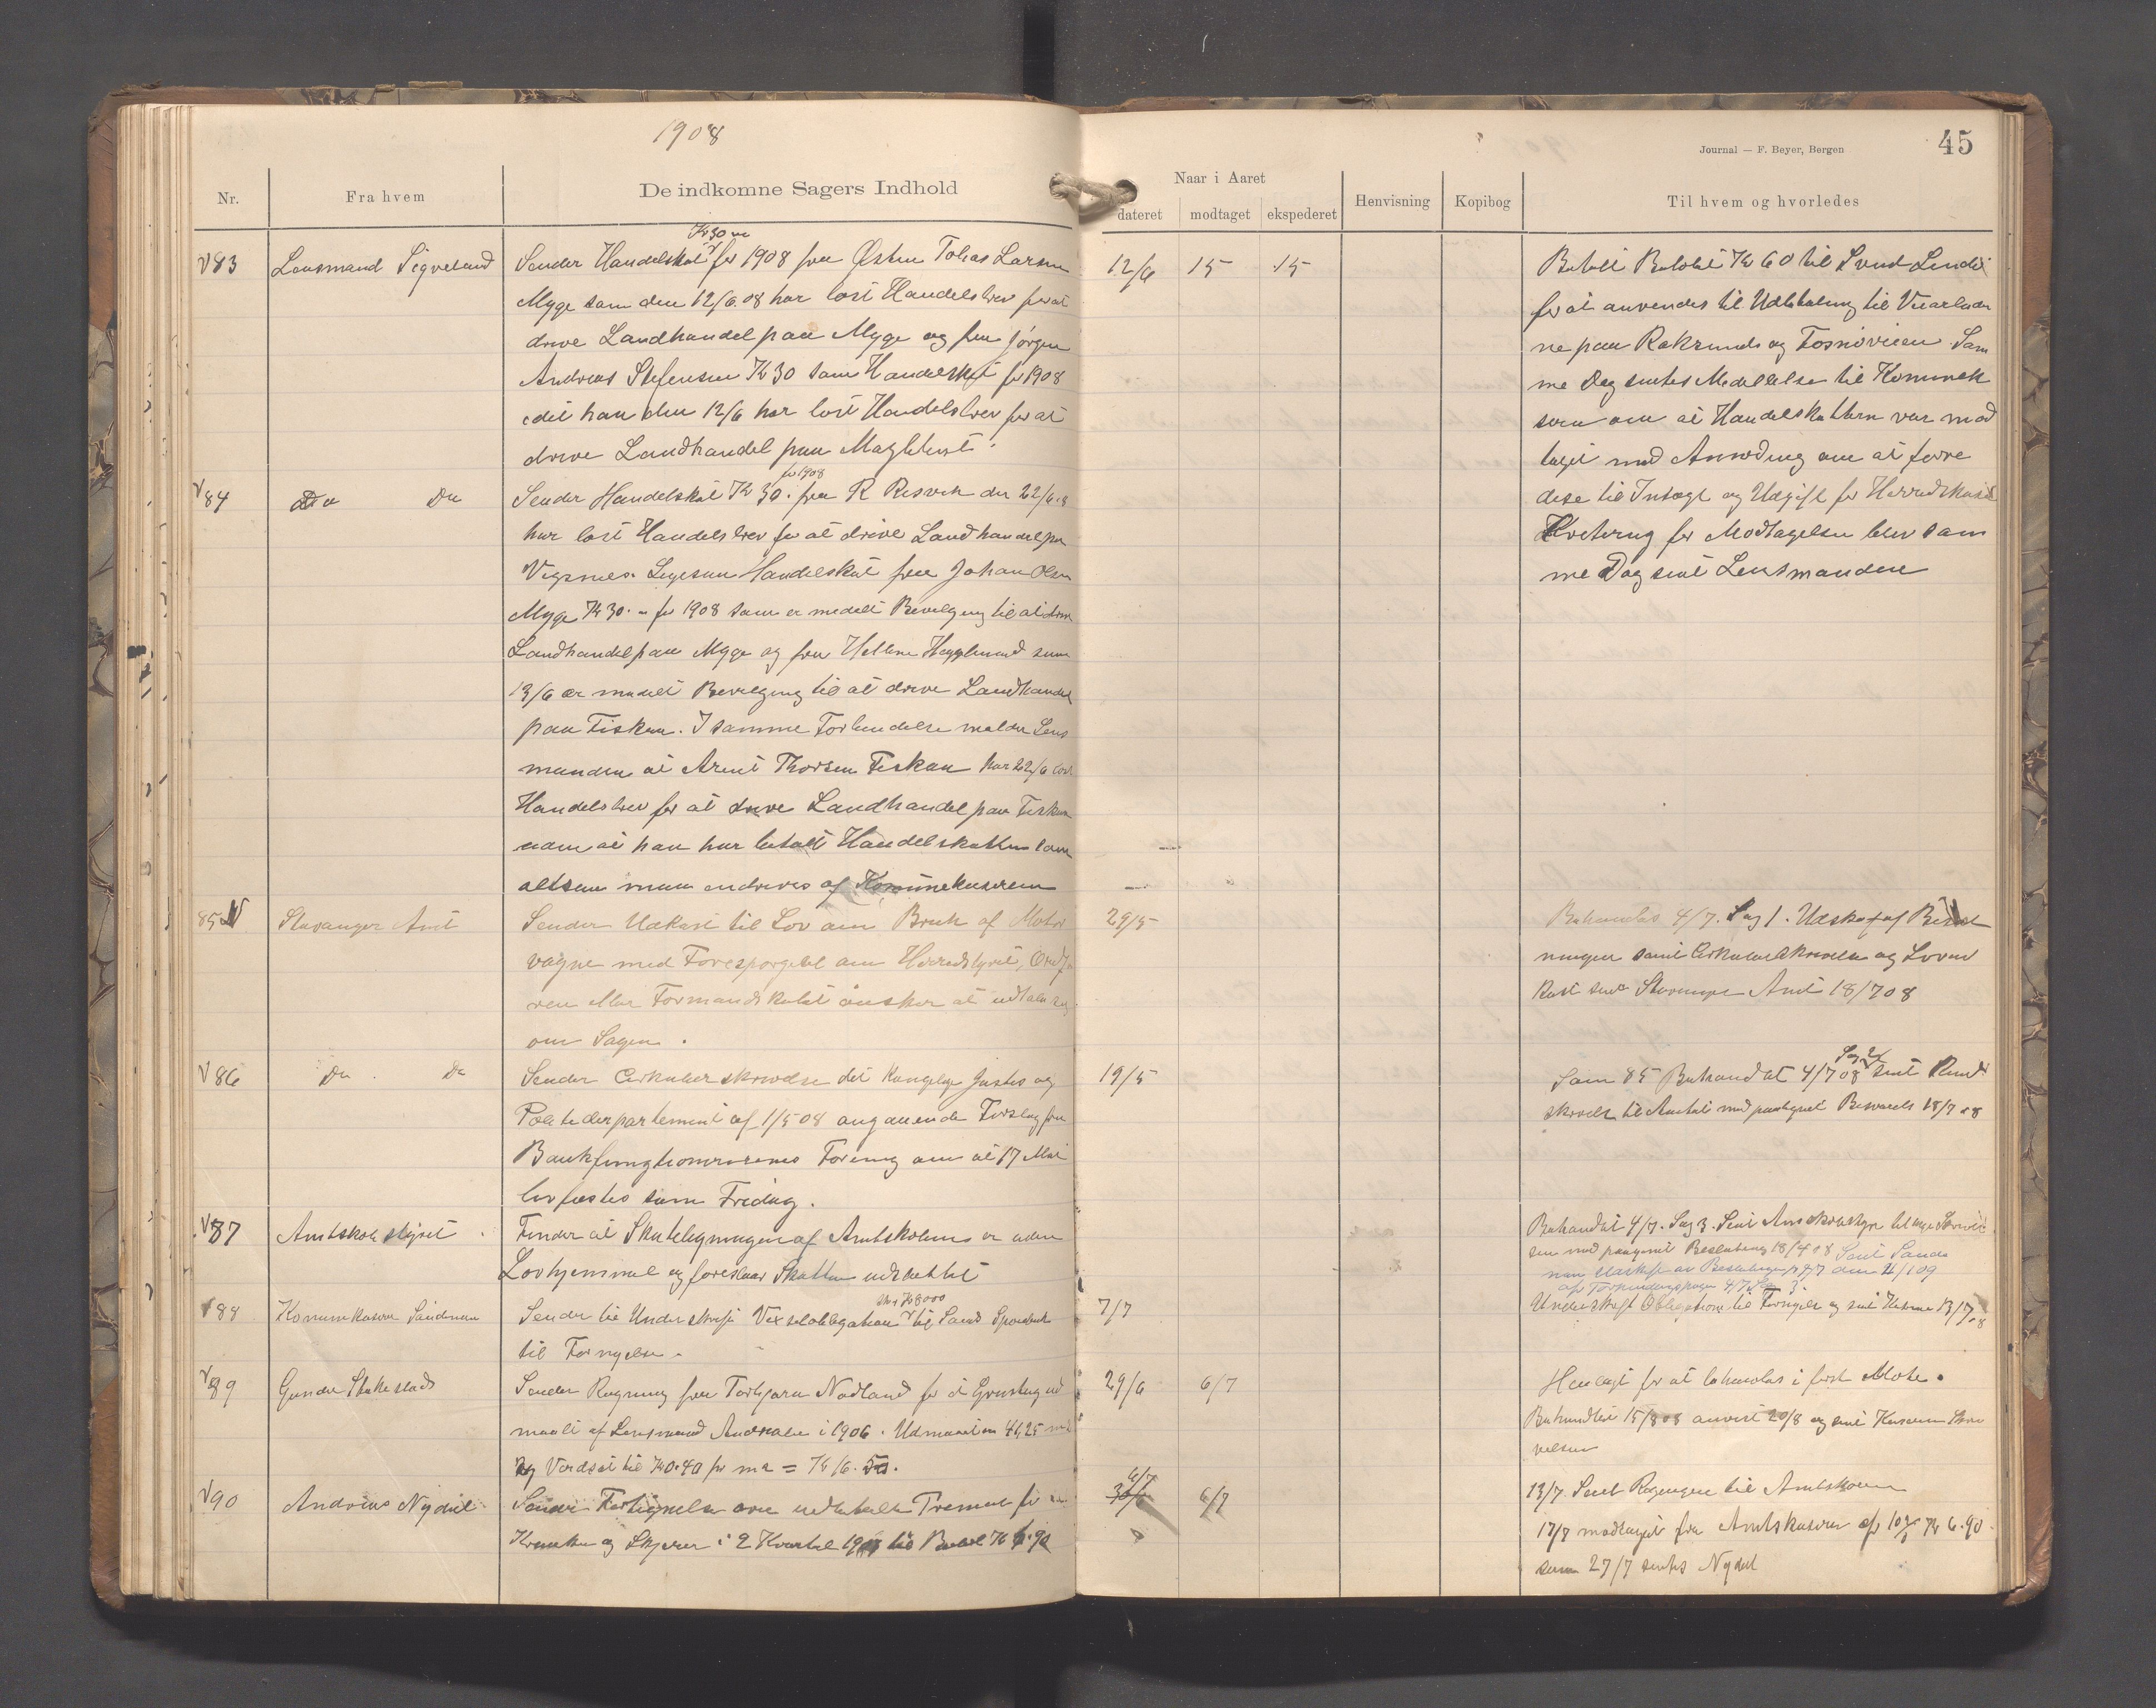 1908
Nr.
Fra hvem
De indkomne Sagers Indhold
83
Lensmand Sigveland
Kr 30
Sender Handelskat for 1908 fra Østen Tobias Larsen
Myge som den 12/6 08 har løst Handelsbrev for at
drive Landhandel paa Myge og fra Jørgen
Andreas Stefensen Kr 30 som Handelskat for 1908
idet han den 12/6 har løst Handelsbrev for at
drive Landhandel paa
84
Do Do
for 1908
Sender Handelskat Kr 30. fra R Risvik der 22/6 08
har løst Handelsbrev for at drive Landhandel paa
Vigsnes. Ligesaa Handelskat fra Johan Olsen
Myge Kr 30.- for 1908 som er meddelt Bevilgning til at drive
Landhandel paa Myge og fra Helene som
13/6 er meddelt Bevilgning til at drive Landhandel
paa Fiskaa. I samme Forbindelse melder Lens
manden at Arent Thorsen Fiskaa har 22/6 løst
Handelsbrev for at drive Landhandel paa Fiskaa
uden at han har betalt Handelskatten som
altsaa maa inddrives af Kommunekassereren
85
Stavanger Amt
Sender Udkast til Lov om Bruk af Motor
vogne med Forespørgsel om Herredstyret, Ordfø
ren eller Formandskabet ønsker at udtale sig
om Sagen.
86
Do Do
Sender Cirkulærskrivelse det Kongelige Justis og
Politidepartement af 1/5 08 angaaende Forslag fra
Bankfunktionærernes Forening om at 17 Mai
lovfæstes som Fridag.
87
Amtskolestyret
Finder at Skatteligningen af Amtskolens er uden
Lovhjemmel og foreslaar Skatten udslettet
88
Kommunekasserer Sandnæs
stor Kr 8000
Sender til Underskrift Vexelobligation til Sand Sparebank
til Fornyelse.
89
Gunder Stakkestad
Sender Regning fra Torbjørn Nodland for et Grustag ud
maalt af Lensmand i 1906. Udmaalt m 41,25 m2
og Værdsat til Kr 0.40 pr m2 = Kr 16.50.
90
Andreas Nydal
Sender Fortegnelse over udbetalte Præmier for
Kraaker og Skjærer i 2 Kvartal 1908 til Beløb Kr 6.90
Journal — F. Beyer, Bergen
45
Naar i Aaret
dateret
modtaget
ekspederet
Henvisning
Kopibog
Til hvem og hvorledes
12/6 15 15
Betalt Beløbet Kr 60 til Svend
for at anvendes til Udbetaling til Veiarbeider
ne paa og Fosnøveien. Sam
me Dag sendtes Meddelelse til Kommunekas
seren om at Handelskatten var mod
taget med Anmodning om at føre
disse til Indtægt og Udgift for Herredskassen
Kvittering for Modtagelsen blev sam
me Dag sent Lensmanden
29/5
Behandlet 4/7. Sag 1. Udskrift af Beslut
ningen samt Cirkulærskrivelse og Lovud
kast sent Stavanger Amt 18/7 08
19/5
Sag 2
Som 85 Behandlet 4/7 08 sent Rund
skrivelse til Amtet med paategnet Besvarelse 18/7 08
Behandlet 4/7. Sag 3. Sent Amtskolestyret
sen med paategnet Beslutning 18/7 08 Sent Sand
7/7
Underskrevet Obligationen til Fornyelse og sent 13/7 08
29/6 6/7
Henlagt for at behandles i første Møte.
Behandlet 15/8 08 anvist 20/8 og sent Kassereren Skri
velsen
4/7
30/6 6/7
13/7. Sent Regningen til Amtskassereren
17/7 modtaget fra Amtskassereren Kr 6.90
som 27/7 sendtes Nydal